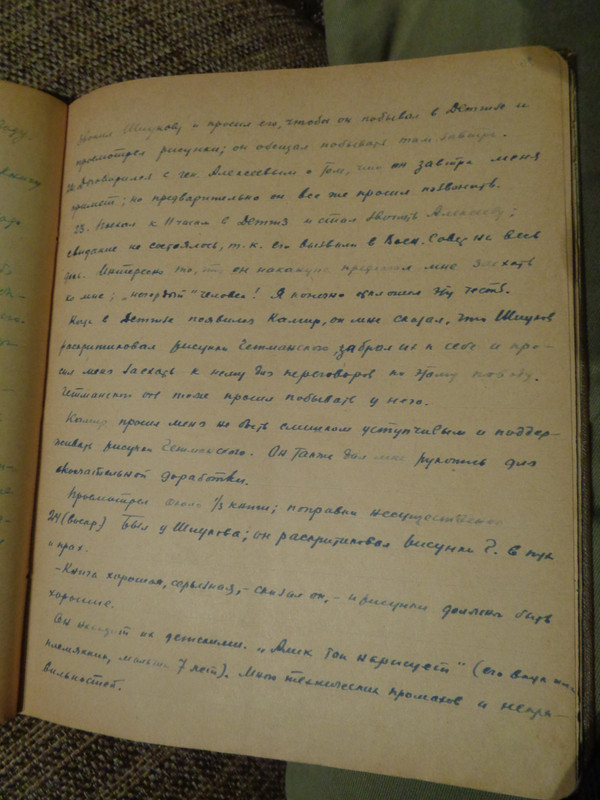 Звонил Шиукову и просил его, чтобы он побывал в Детгизе и
просмотрел рисунки; он обещал побывать там завтра.
22. Договорился с ген. Алексеевым о том, что он завтра меня
примет; но предварительно он все же просил позвонить.
23. Поехал к 11 часам в Детгиз и стал звонить Алексееву;
свидание не состоялось, т.к. его вызвали в Воен. Совет на весь
день. Интересно то, что он накануне предлагал мне заехать
ко мне; „негордый" человек! Я конечно отклонил эту честь.
Когда в Детгизе появился Камир, он мне сказал, что Шиуков
раскритиковал рисунки Гетманского, забрал их к себе и про-
сил меня заехать к нему для переговоров по этому поводу.
Гетманского он тоже просил побывать у него.
Камир просил меня не быть слишком уступчивым и поддер-
живать рисунки Гетманского. Он также дал мне рукопись для
окончательной доработки.
Просмотрел около 1/3 книги; поправки несущественные
24 (воскр) Был у Шиукова; он раскритиковал рисунки Г. в пух
и прах.
- Книга хорошая, серьезная, - сказал он, - и рисунки должны быть
хорошие.
Он находит их детскими. „Алик так нарисует" (его
племянник, мальчик 7 лет). Много технических промахов и непра-
вильностей.